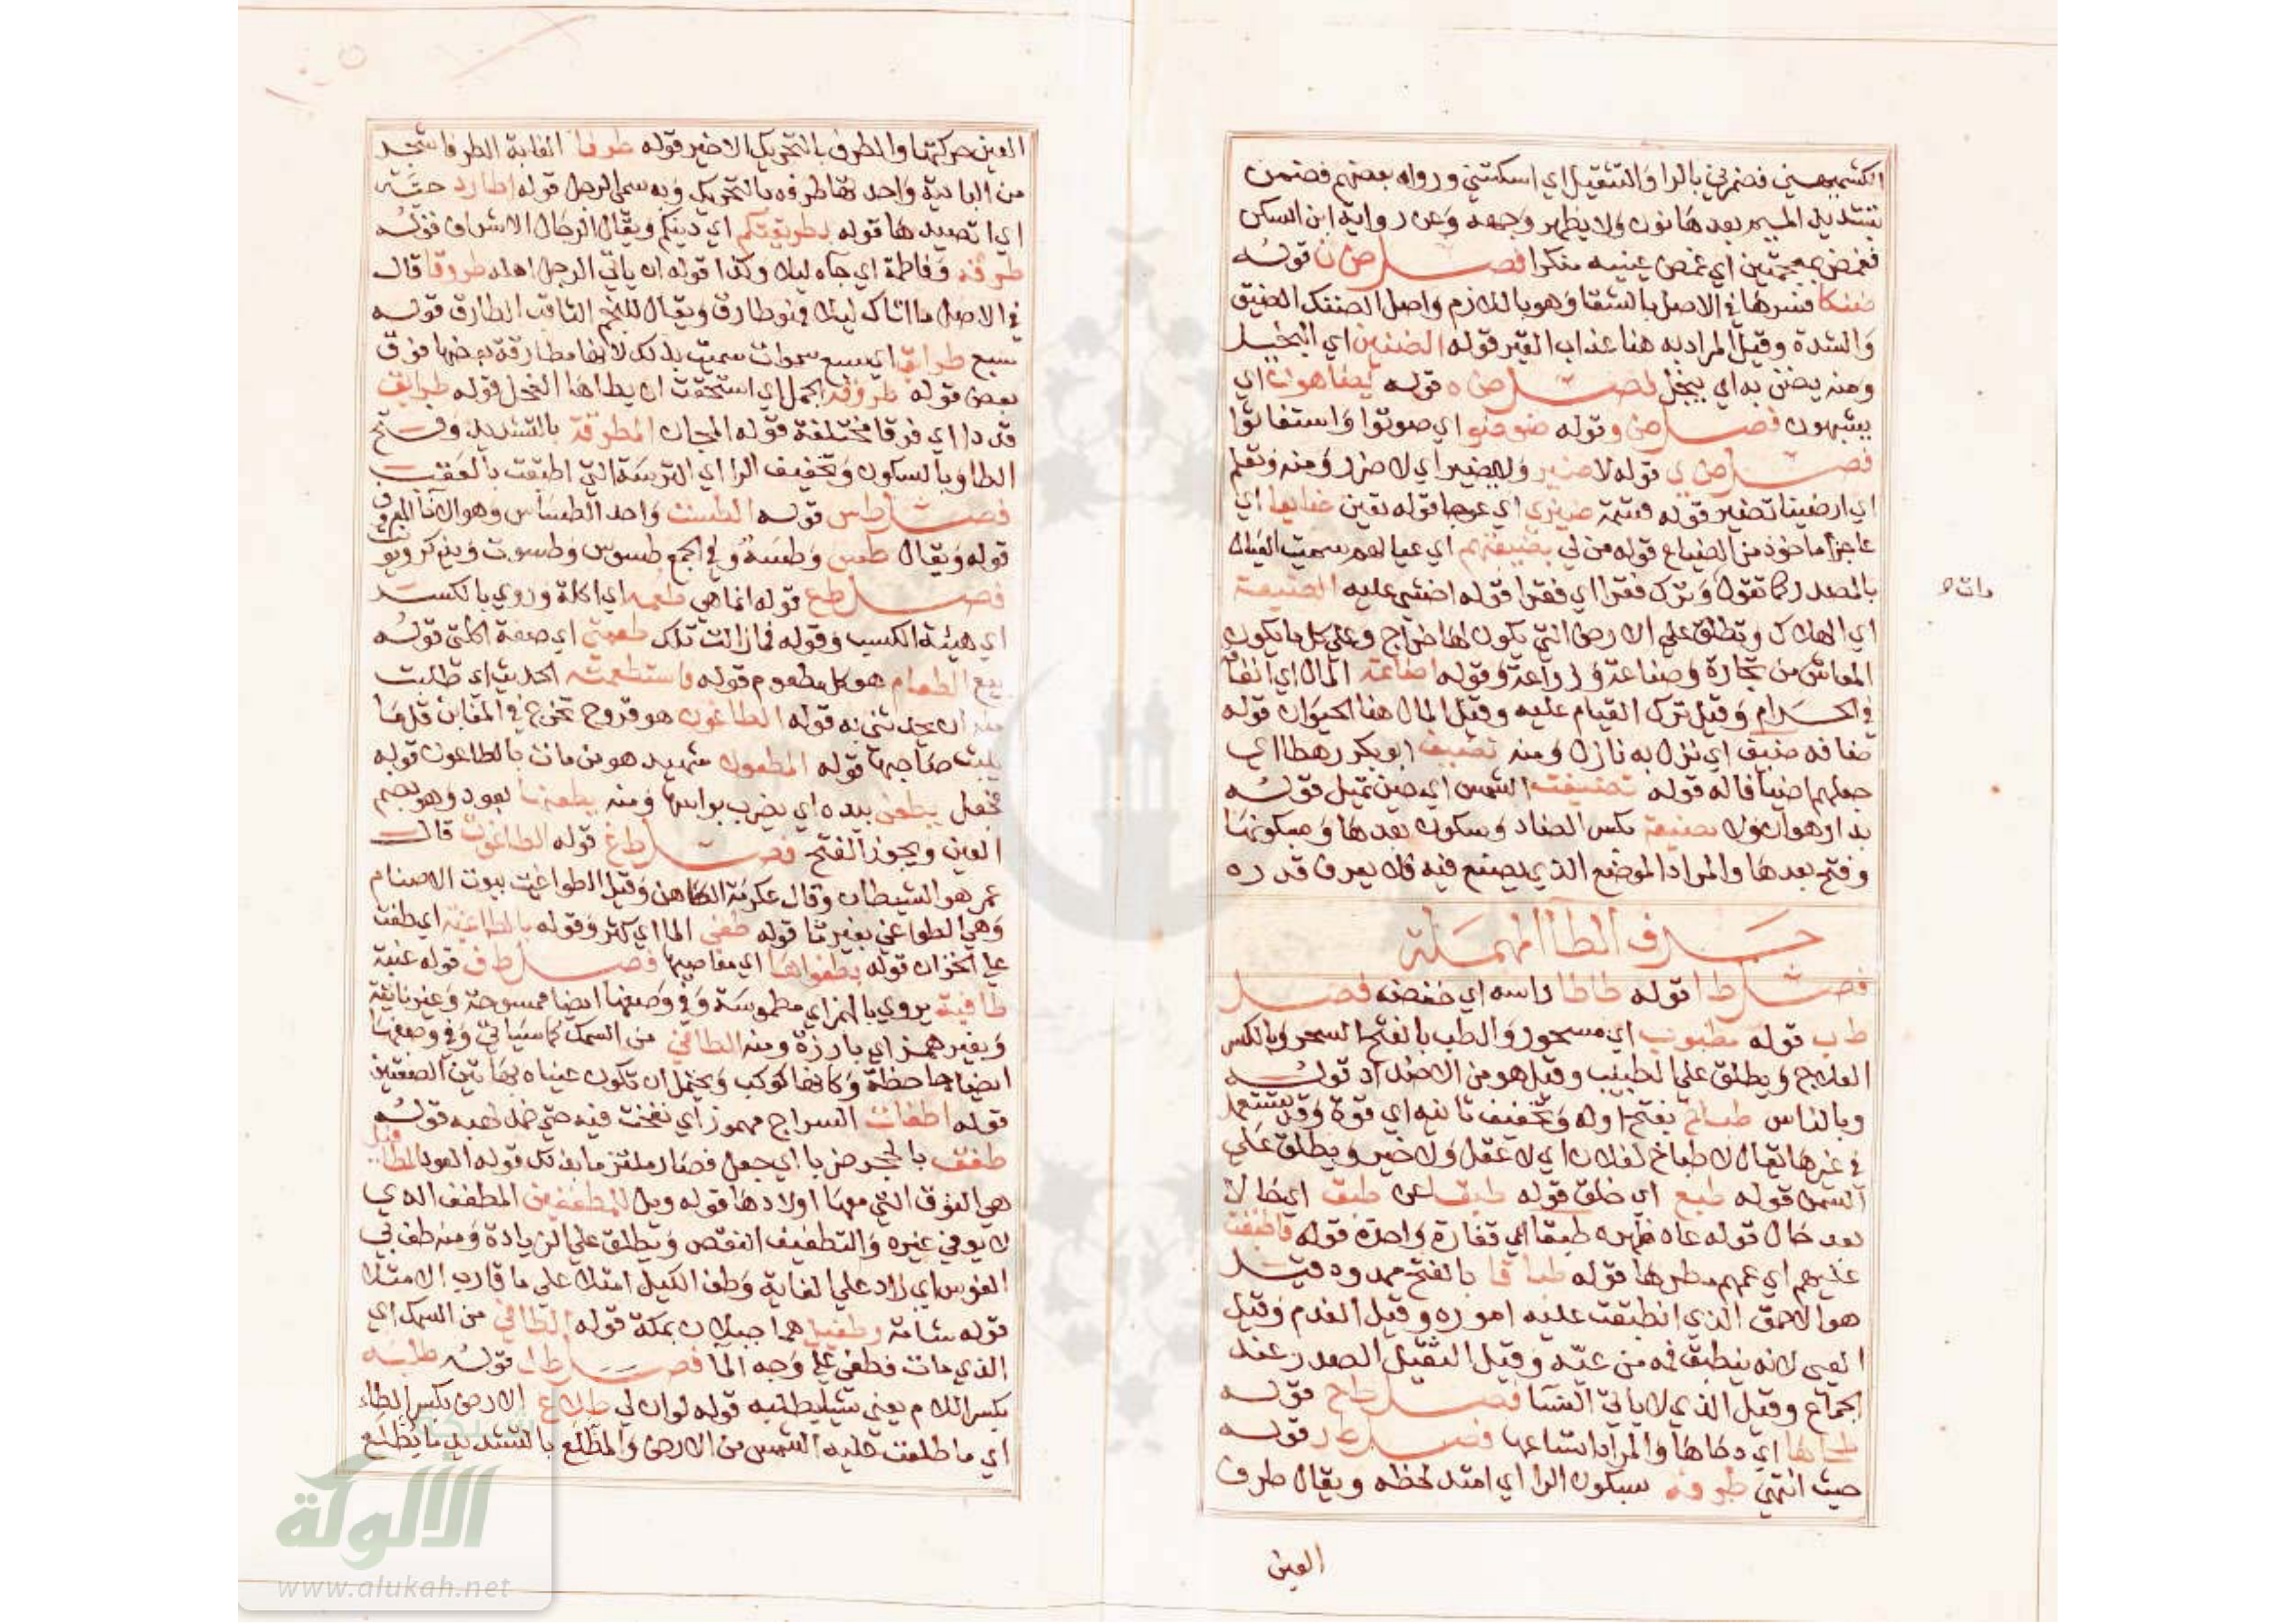 الكشميهني فضمزني بالزا والتثقيل اي اسكتني ورواه بعضهم فضمن
بتشديد الميم بعدها نون ولا يظهر وجهه وعن رواية ابن السكن
فغمض بمعجمتين اي غمض عينيه منكرا فصل ض ن قوله
ضنكا فسرها في الاصل بالشقا وهو باللازم واصل الضنك الضيق
والشدة وقيل المراد به هنا عذاب القبر قوله الضنين اي البخيل
ومنه يضن به اي يبخل فصل ض ه قوله يضاهون اي
يشبهون فصل ض و قوله ضوضوا اي صوتوا واستغاثوا
فصل ض ي قوله لا ضير ولا يضير اي لا ضرر ومنه وتعلم
اي ارضينا تضير قوله قسمة ضيزى اي عوجا قوله تعين ضايعا اي
عاجزا ماخوذ من الضياع قوله من لي بضيعتهم اي عيالهم سميت العيال
بالمصدر كما تقول وترك فقرا اي فقرا قوله اخشى عليه الضيعة
مات ه
اي الهلاك وتطلق على الارض التي يكون لها خراج وعلى كل ما يكون
المعاش من تجارة وصناعة وزراعة وقوله اضاعة المال اي انفاقه
في الحرام وقيل ترك القيام عليه وقيل المال هنا الحيوان قوله
ضافه ضيف اي نزل به نازل ومنه تضيف ابو بكر رهطا اي
جعلهم اضيافا له قوله تضيفت الشمس اي حين تميل قوله
بدار هوان ولا مضيعة بكسر الضاد وسكون بعدها وبسكونها
وفتح بعدها والمراد الموضع الذي يضيع فيه فلا يعرف قدره
حرف الطاء المهملة
فصل ط ا قوله طاطا راسه اي خفضه فصل
ط ب قوله مطبوب اي مسحور والطب بالفتح السحر وبالكسر
العلاج ويطلق على الطبيب وقيل هو من الاضداد قوله
وبالناس طباخ بفتح اوله وتخفيف ثانيه اي قوة وقد يستعمل
في غيرها يقال لا طباخ لفلان اي لا عقل ولا خير ويطلق على
السمن قوله طبع اي خلق قوله طبقا عن طبق اي حالا
بعد حال قوله عاد ظهره طبقا اي فقارة واحدة قوله فاطبقت
عليهم اي عمهم مطرها قوله طباقا بالفتح ممدود قيل
هو الاحمق الذي انطبقت عليه اموره وقيل الفدم وقيل
العيي لانه ينطبق فمه من عيه وقيل الثقيل الصدر عند
الجماع وقيل الذي لا ياتي النسا فصل ط ح قوله
طحاها اي دحاها والمراد اتساعها فصل ط ر قوله
حيث انتهى طرفه بسكون الرا اي امتد لحظه ويقال طرف
العين
العين حركتها والطرف بالتحريك الاخير قوله طرفا الغابة الطرفا شجر
من البادية واحدتها طرفة بالتحريك وبه سمي الرجل قوله اطارد حية
اي اتصيدها قوله بطريقتكم اي دينكم ويقال الرجال الاشراف قوله
طرقه وفاطمة اي جاه ليلا وكذا قوله ان ياتي الرجل اهله طروقا قال
في الاصل ما اتاك ليلا فهو طارق ويقال للنجم الثاقب الطارق قوله
سبع طرايق اي سبع سموات سميت بذلك لانها مطارقة بعضها فوق
بعض قوله طروقة الجمل اي استحقت ان يطاها الفحل قوله طرايق
قددا اي فرقا مختلفة قوله المجان المطرقة بالتشديد وفتح
الطا وبالسكون وتخفيف الرا اي الترسة التي اطبقت بالعقب
فصل ط س قوله الطست واحد الطساس وهو الانا المعروف
قوله ويقال طس وطسة وفي الجمع طسوس وطسوت ويذكر ويونث
فصل ط ع قوله انما هي طعمة اي اكلة وروي بالكسر
اي هيئة الكسب وقوله فما زالت تلك طعمتي اي صفة اكلتي قوله
بيع الطعام هو كل مطعوم قوله فاستطعمته الحديث اي طلبت
منه ان يحدثني به قوله الطاعون هو قروح تخرج في المغابن قل ما
يلبث صاحبها قوله المطعون شهيد هو من مات بالطاعون قوله
فجعل يطعن بيده اي يضرب براسها ومنه يطعنها بعود وهو بضم
العين ويجوز الفتح فصل ط غ قوله الطاغوت قال
عمر هو الشيطان وقال عكرمة الكاهن وقيل الطواغيت بيوت الاصنام
وهي الطواغي بغير تا قوله طغى الما اي كثر وقوله بالطاغية اي طغت
على الخزان قوله بطغواها اي معاصيها فصل ط ف قوله عنبة
طافية يروى بالهمز اي مطموسة وفي وصفها ايضا ممسوحة وغير ناتئة
وبغير همز اي بارزة ومنه الطافي من السمك كما سياتي وفي وصفها
ايضا جاحظة وكانها كوكب ويحتمل ان تكون عيناه بهاتين الصفتين
قوله اطفات السراج مهموز اي نفخت فيه حتى خمد لهبه قوله
طفق بالحجر ضربا اي جعل فصار ملتزما بذلك قوله العوذ المطافيل
هي النوق التي معها اولادها قوله ويل للمطففين المطفف الذي
لا يوفي غيره والتطفيف النقص ويطلق على الزيادة ومنه طفف بي
الفرس اي زاد على الغاية وطف الكيل امتلا على ما قارب الامتلا
قوله شامة وطفيل هما جبلان بمكة قوله الطافي من السمك اي
الذي مات فطفى على وجه الما فصل ط ل قوله طلبه
بكسر اللام يعني تثليطليه قوله لو ان لي طلاع الارض بكسر الطاء
اي ما طلعت عليه الشمس من الارض والمطلع بالتشديد ما يطلع
الألوكة
www.alukah.net